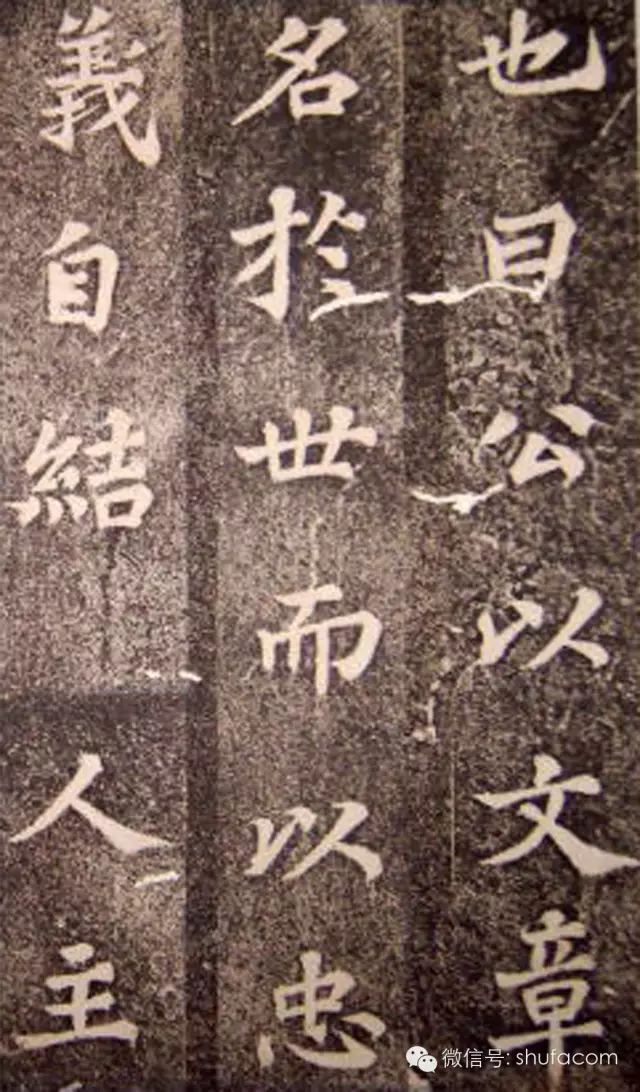 也曰公以文章
名於世而以忠
義自結人主
微信号: shufacom